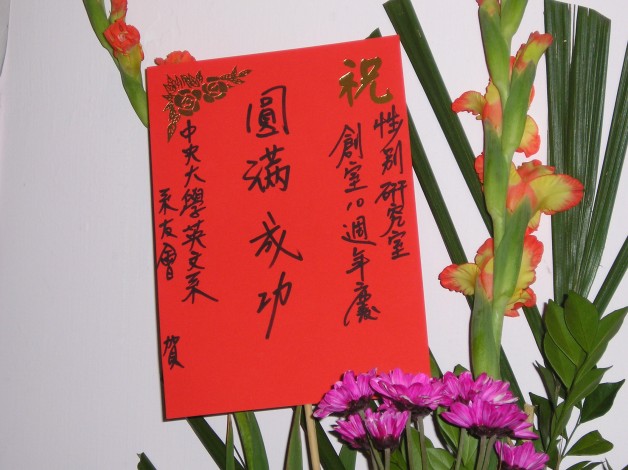 祝
性別研究室
創室10週年慶
圓滿成功
中央大學英文系
系友會 賀